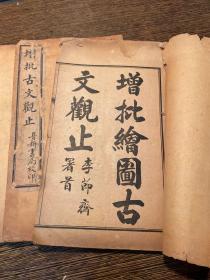 增批繪圖古
文觀止
李節齋
署首
增批古文觀止